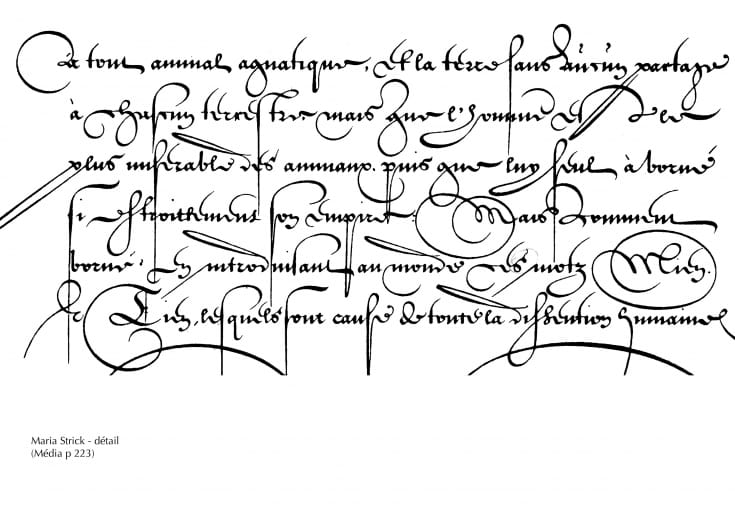 à tout animal aquatique, et la terre sans aucun partage
à chascun terrestre mais que l'homme est
plus misérable des animaux. puis que luy seul à borné
si estroittement son empire: Mais comment
borné? En introduisant au monde ces motz Mien.
& Tien, lesquels sont cause de toute la dissention humaine
Maria Strick - détail
(Média p 223)